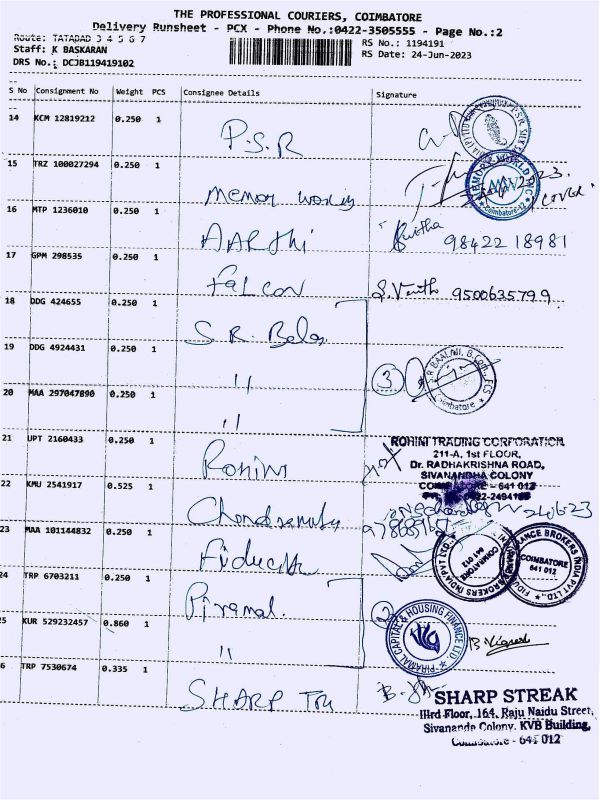 THE PROFESSIONAL COURIERS, COIMBATORE
Delivery Runsheet - PCX - Phone No.:0422-3505555 - Page No.:2
Route: TATABAD 3 4 5 6 7
RS No.: 1194191
Staff: K BASKARAN
RS Date: 24-Jun-2023
DRS No.: DCJB119419102
S No Consignment No Weight PCS Consignee Details Signature
14 KCM 12819212 0.250 1 P.S.R
15 TRZ 100027294 0.250 1 Memory World
16 MTP 1236010 0.250 1 AARthi 98422 18981
17 GPM 298535 0.250 1 Falcon 9500635799
18 DDG 424655 0.250 1 S.R. Balaji
19 DDG 4924431 0.250 1 "
3
S.R BAALAJI, B.Com, FCS
Coimbatore
20 MAA 297047890 0.250 1 "
21 UPT 2160433 0.250 1 Rohini
ROHINI TRADING CORPORATION
211-A, 1st FLOOR,
Dr. RADHAKRISHNA ROAD,
SIVANANDHA COLONY
COIMBATORE - 641 012
22 KMU 2541917 0.525 1
24/6/23
23 MAA 101144832 0.250 1
COIMBATORE
641 012
24 TRP 6703211 0.250 1 Piramal.
2
PIRAMAL CAPITAL & HOUSING FINANCE LTD
25 KUR 529232457 0.860 1 "
B. Vignesh
26 TRP 7530674 0.335 1 SHARP
SHARP STREAK
IIIrd Floor, 164, Raju Naidu Street,
Sivananda Colony, KVB Building,
Coimbatore - 641 012